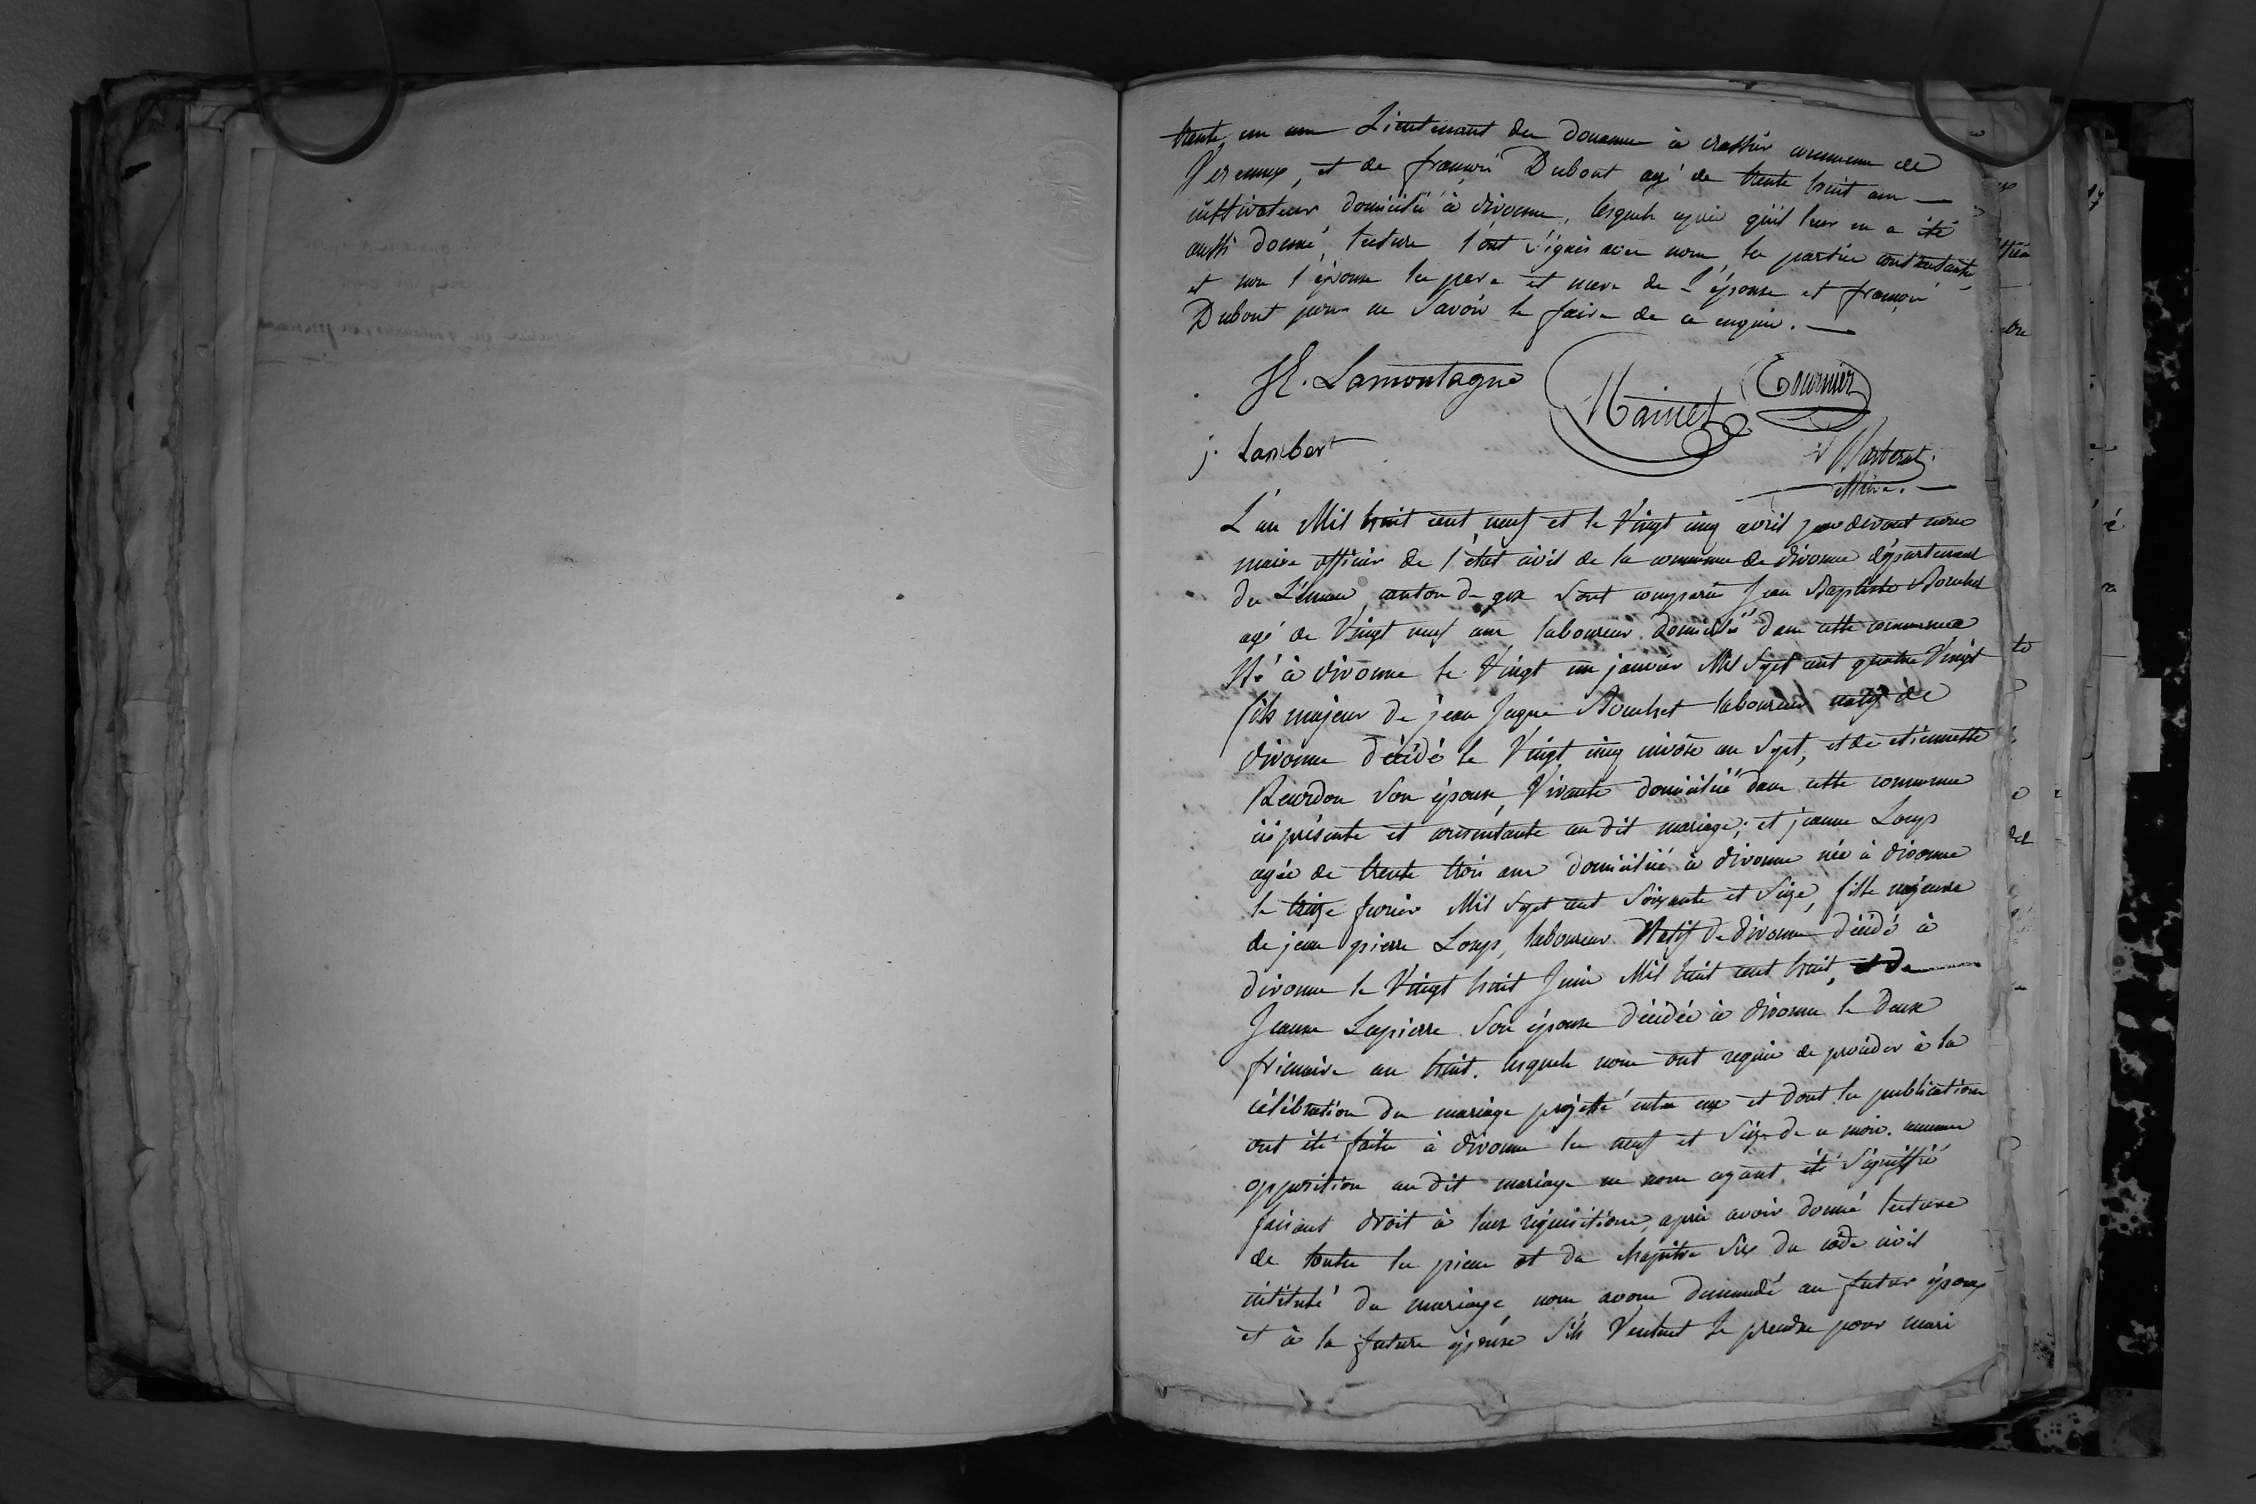 trente un ans Lieutenant des Douanes à crassier commune de
Versonnex, et de françois Dubout agé de trente huit ans —
cultivateur domicilié à divonne, lesquels après qu'il leur en a été
aussi donné lecture l'ont signés avec nous, les parties contractantes
et non l'épouse les pere et mere de l'épouse et françois
Dubout pour ne savoir le faire de ce enquis. —
H. Lamontagne Mainet Tournier
j. Lambert
Maire.
L'an Mil huit cent neuf et le Vingt cinq avril par devant nous
maire officier de l'état civil de la commune de divonne département
du Léman, canton de gex sont comparu Jean Baptiste Bouchet
agé de Vingt neuf ans laboureur domicilié dans cette commune
Né à divonne le Vingt un janvier Mil Sept cent quatre Vingt
fils majeur de jean Jaque Bouchet laboureur natif de
divonne décédé le Vingt cinq nivôse an Sept, et de etiennette
Reurdon son épouse, Vivante domiciliée dans cette commune
ici présente et consentante au dit mariage; et jeanne Loup
agée de trente trois ans domiciliée à divonne née à divonne
le treize fevrier Mil Sept cent Soixante et Seize, fille majeure
de jean pierre Loup, laboureur Natif de divonne décédé à
divonne le Vingt huit Juin Mil huit cent huit, et de
Jeanne Lapierre Son épouse décédée à divonne le deux
frimaire an huit. lesquels nous ont requis de procéder à la
célébration du mariage projetté entre eux et dont les publications
ont été faites à divonne les neuf et Seize de ce mois. aucune
opposition au dit mariage ne nous ayant été Signiffié
faisant droit à leur réquisitions, après avoir donné lecture
de toutes les pieces et du chapitre Six du code civil
intitulé du mariage, nous avons demandé au futur époux
et à la future épouse s'ils Veulent se prendre pour mari